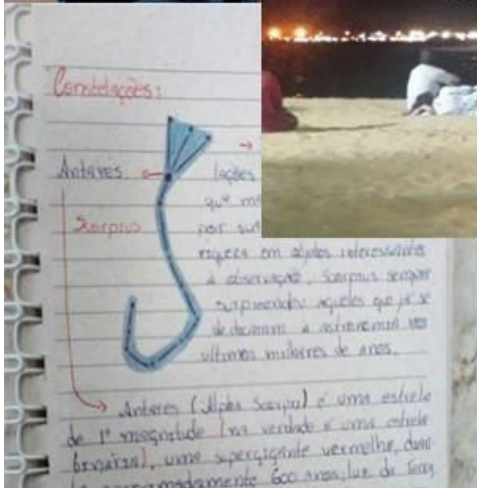 Constelações:
Antares
Scorpius
lações
que
por sua
riqueza em objetos interessantes
à observação, Scorpius sempre
surpreendeu aqueles que já se
dedicaram à astronomia nos
últimos milhares de anos.
Antares (Alpha Scorpii) é uma estrela
de 1ª magnitude (na verdade é uma estrela
binária), uma supergigante vermelha,
aproximadamente 600 anos-luz da Terra,